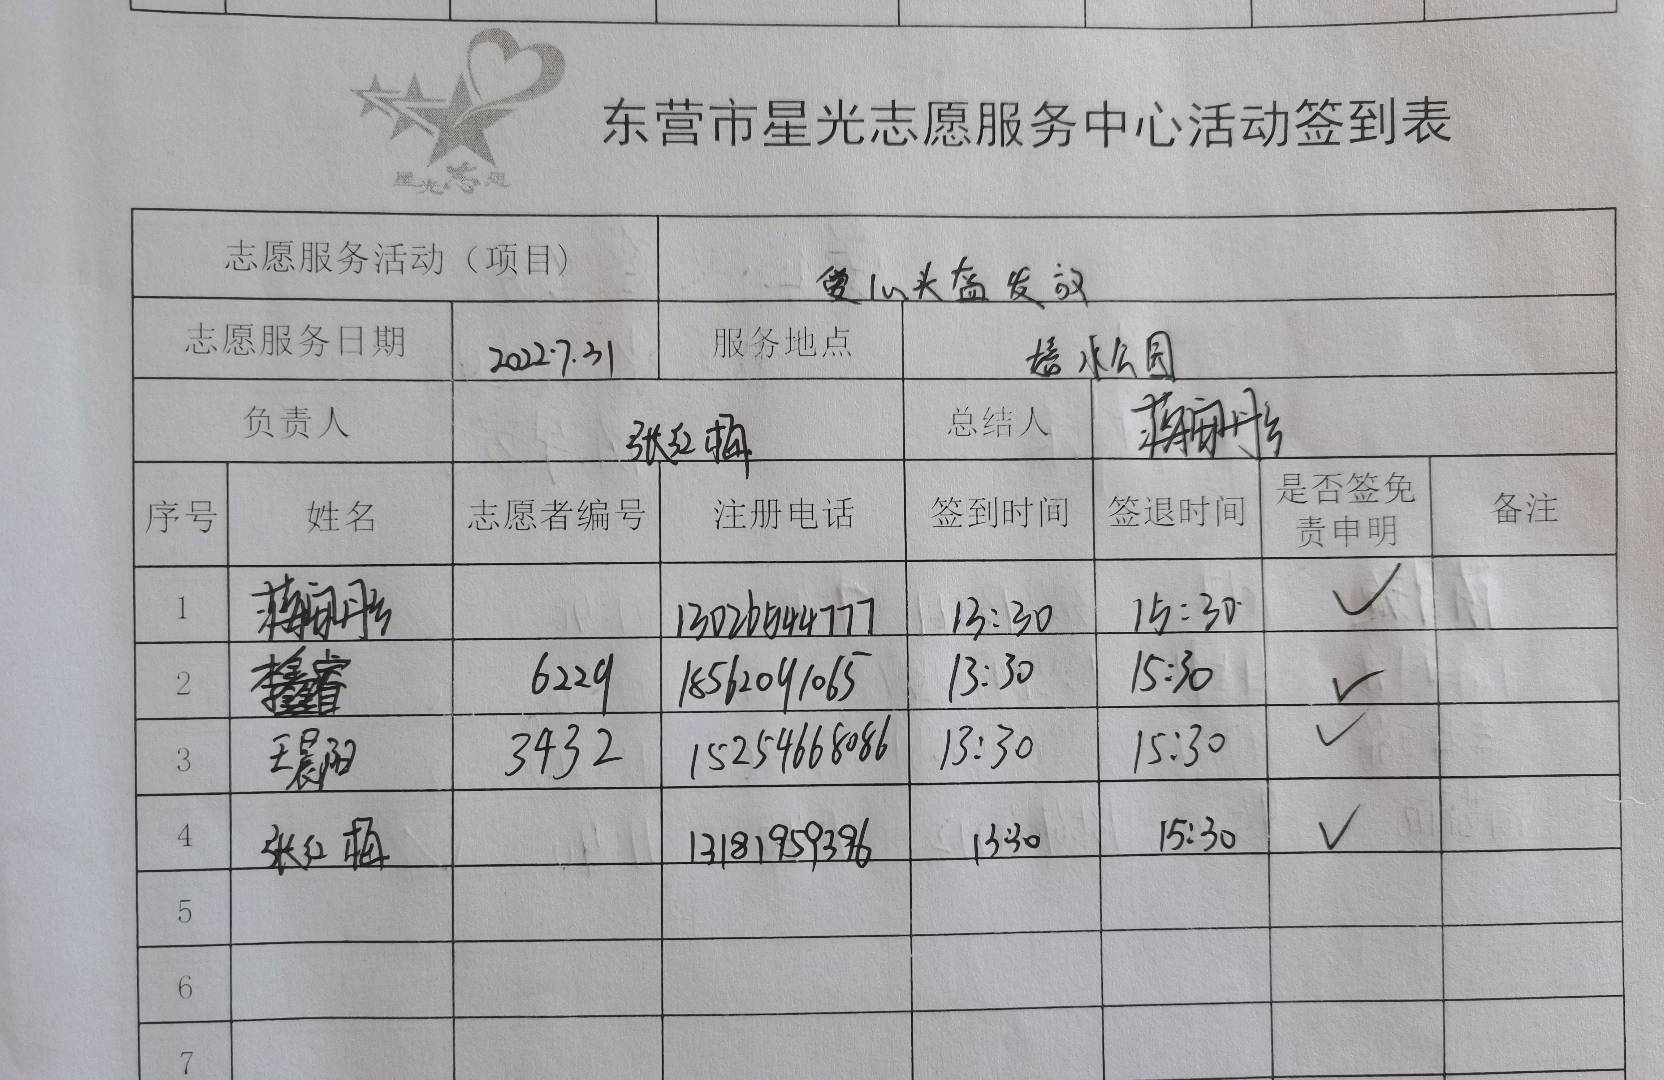 星光志愿
东营市星光志愿服务中心活动签到表
志愿服务活动（项目） 爱心头盔发放
志愿服务日期 2022.7.31 服务地点 水公园
负责人 张红梅 总结人
序号 姓名 志愿者编号 注册电话 签到时间 签退时间 是否签免责申明 备注
1 13026544777 13:30 15:30 ✓
2 6229 18562091065 13:30 15:30 ✓
3 王晨阳 3432 15254668086 13:30 15:30 ✓
4 张红梅 13181959396 13:30 15:30 ✓
5
6
7